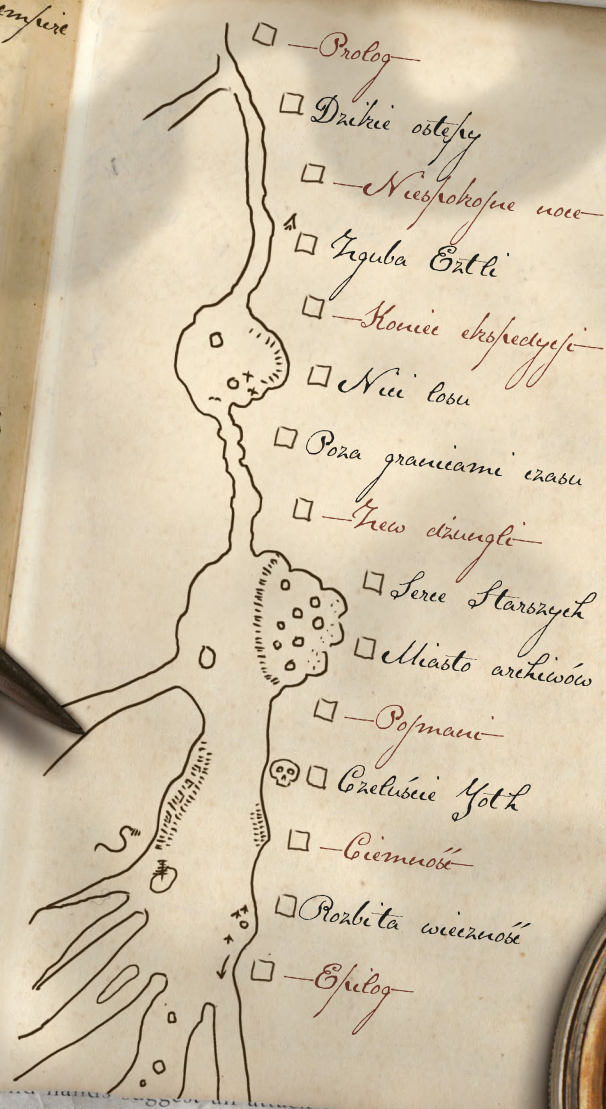 empire
—Prolog—
Dzikie ostępy
—Niespokojne noce—
Zguba Eztli
—Koniec ekspedycji—
Nici losu
Poza granicami czasu
—Zew dżungli—
Serce Starszych
Miasto archiwów
—Pojmani—
Czeluście Yoth
—Ciemność—
Rozbita wieczność
—Epilog—
hands suggest an